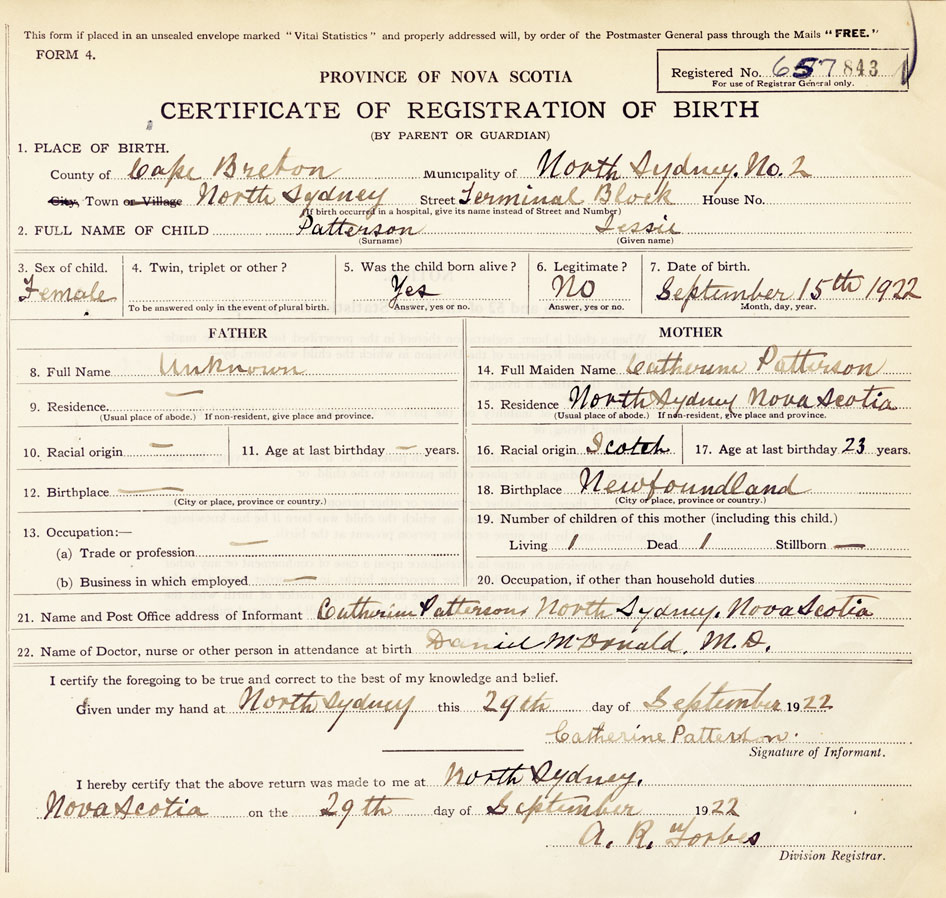 This form if placed in an unsealed envelope marked "Vital Statistics" and properly addressed will, by order of the Postmaster General pass through the Mails "FREE."
FORM 4.
Registered No. 657843
For use of Registrar General only.
PROVINCE OF NOVA SCOTIA
CERTIFICATE OF REGISTRATION OF BIRTH
(BY PARENT OR GUARDIAN)
1. PLACE OF BIRTH.
County of Cape Breton Municipality of North Sydney. No. 2
City, Town or Village North Sydney Street Terminal Block House No.
(If birth occurred in a hospital, give its name instead of Street and Number)
2. FULL NAME OF CHILD Patterson Jessie
(Surname) (Given name)
3. Sex of child. 4. Twin, triplet or other? 5. Was the child born alive? 6. Legitimate? 7. Date of birth.
Female Yes No September 15th 1922
To be answered only in the event of plural birth. Answer, yes or no. Answer, yes or no. Month, day, year.
FATHER
8. Full Name Unknown
9. Residence. —
(Usual place of abode.) If non-resident, give place and province.
10. Racial origin — 11. Age at last birthday — years.
12. Birthplace —
(City or place, province or country.)
13. Occupation:—
(a) Trade or profession —
(b) Business in which employed —
MOTHER
14. Full Maiden Name Catherine Patterson
15. Residence North Sydney Nova Scotia
(Usual place of abode.) If non-resident, give place and province.
16. Racial origin Scotch 17. Age at last birthday 23 years.
18. Birthplace Newfoundland
(City or place, province or country.)
19. Number of children of this mother (including this child.)
Living 1 Dead 1 Stillborn —
20. Occupation, if other than household duties
21. Name and Post Office address of Informant Catherine Patterson, North Sydney. Nova Scotia
22. Name of Doctor, nurse or other person in attendance at birth Daniel McDonald, M.D.
I certify the foregoing to be true and correct to the best of my knowledge and belief.
Given under my hand at North Sydney this 29th day of September 1922
Catherine Patterson.
Signature of Informant.
I hereby certify that the above return was made to me at North Sydney.
Nova Scotia on the 29th day of September 1922
A. R. Forbes
Division Registrar.